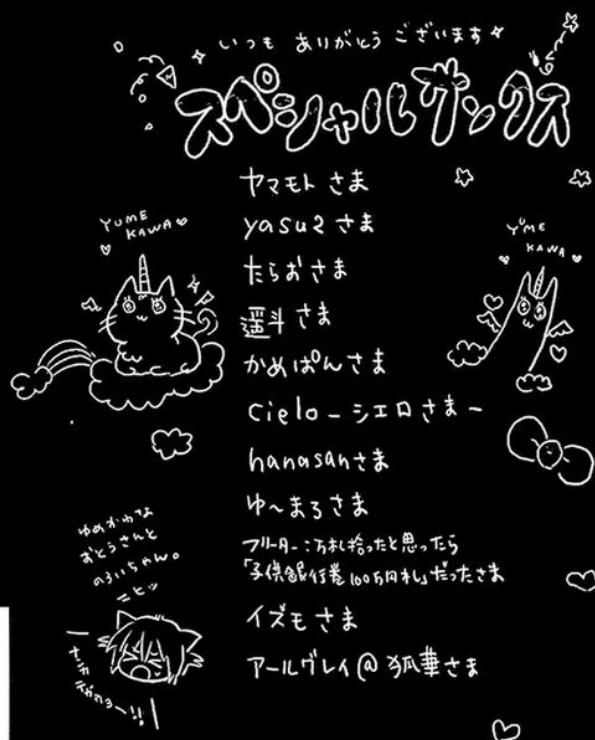 いつも ありがとう ございます
スペシャルサンクス
ヤマモト さま
yasu2 さま
たらおさま
遥斗 さま
かめぱんさま
cielo - シエロさま -
hanasanさま
ゆ〜まろさま
フリーター:万札拾ったと思ったら
「子供銀行券100万円札」だったさま
イズモさま
アールグレイ@狐華さま
YUME
KAWA
YUME
KAWA
ゆめかわな
おとうさんと
のろいちゃん。